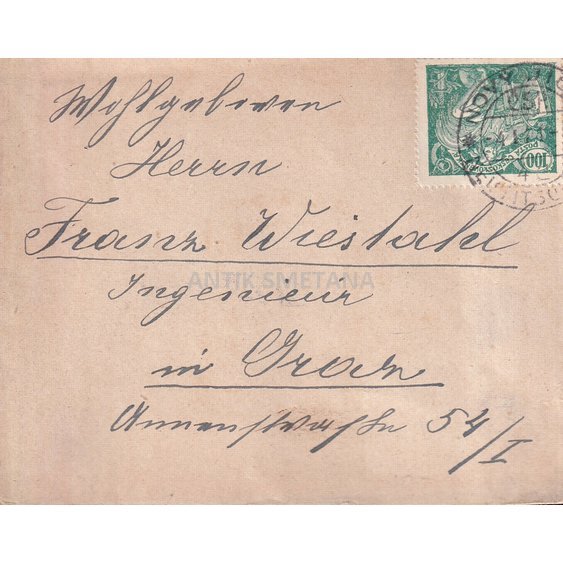 Wohlgeboren
Herrn
Franz Wiesthal
Ingenieur
in Graz
Annenstrasse 54/I
ANTIK SMETANA
100
NOVÝ